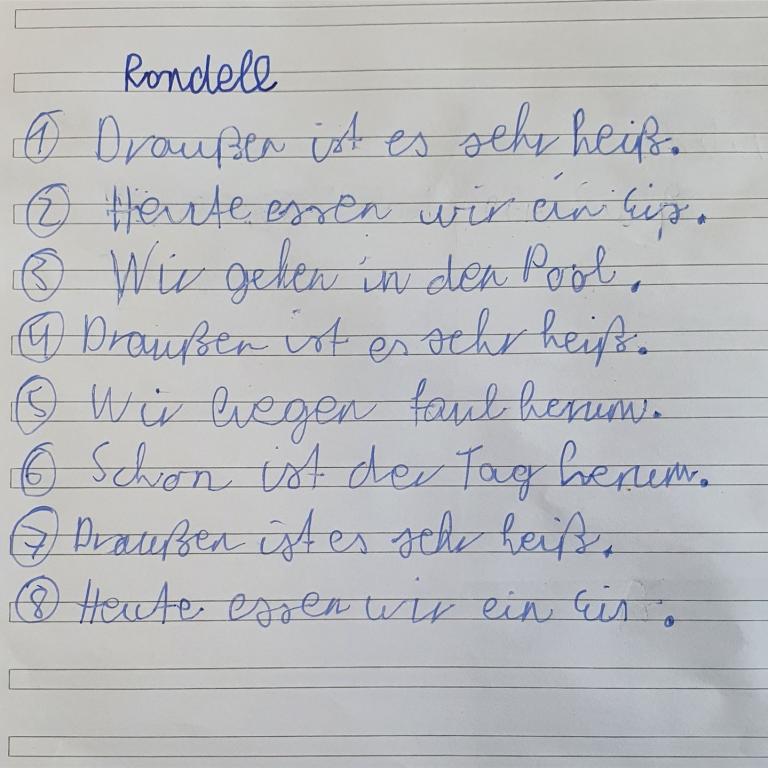 Rondell
① Draußen ist es sehr heiß.
② Heute essen wir ein Eis.
③ Wir gehen in den Pool.
④ Draußen ist es sehr heiß.
⑤ Wir liegen faul herum.
⑥ Schon ist der Tag herum.
⑦ Draußen ist es sehr heiß.
⑧ Heute essen wir ein Eis.